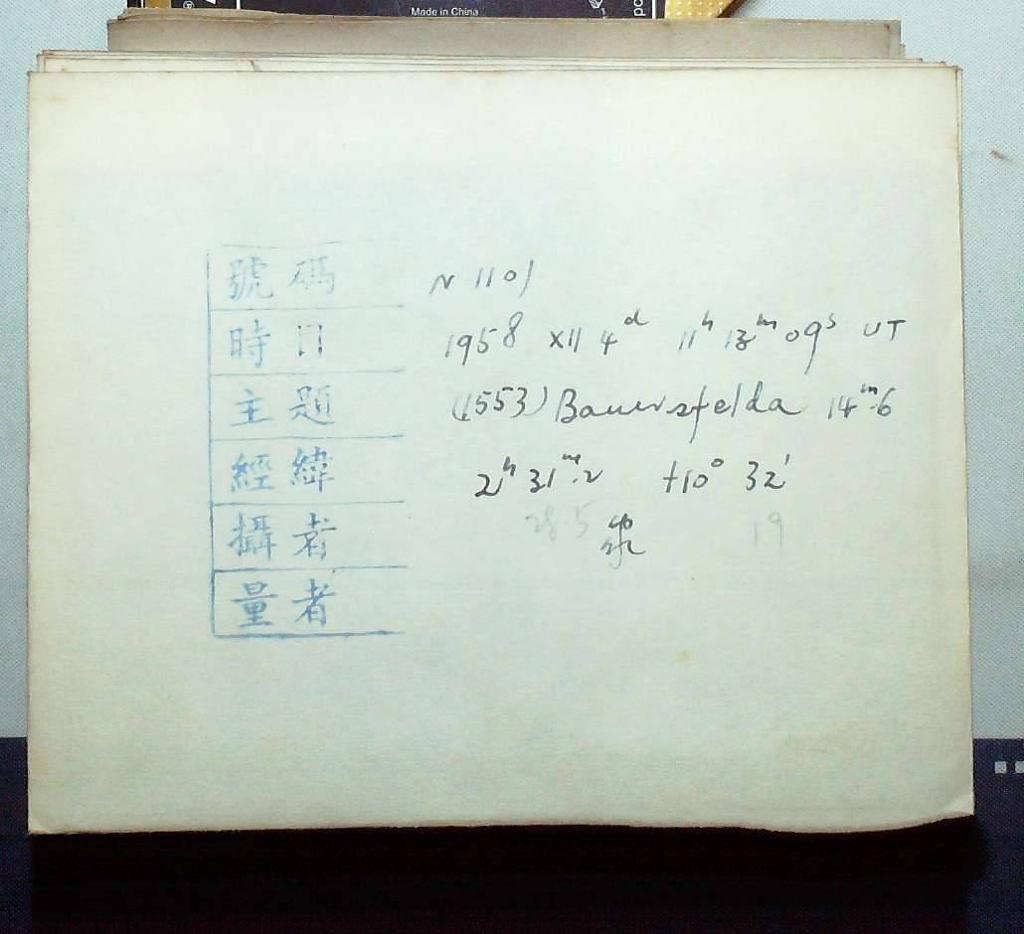 Made in China
號碼 N 1101
時日 1958 XII 4ᵈ 11ʰ 13ᵐ 09ˢ UT
主題 (1553) Bauersfelda 14ᵐ.6
經緯 2ʰ 31ᵐ.2 +10° 32'
28.5 19
攝者
量者